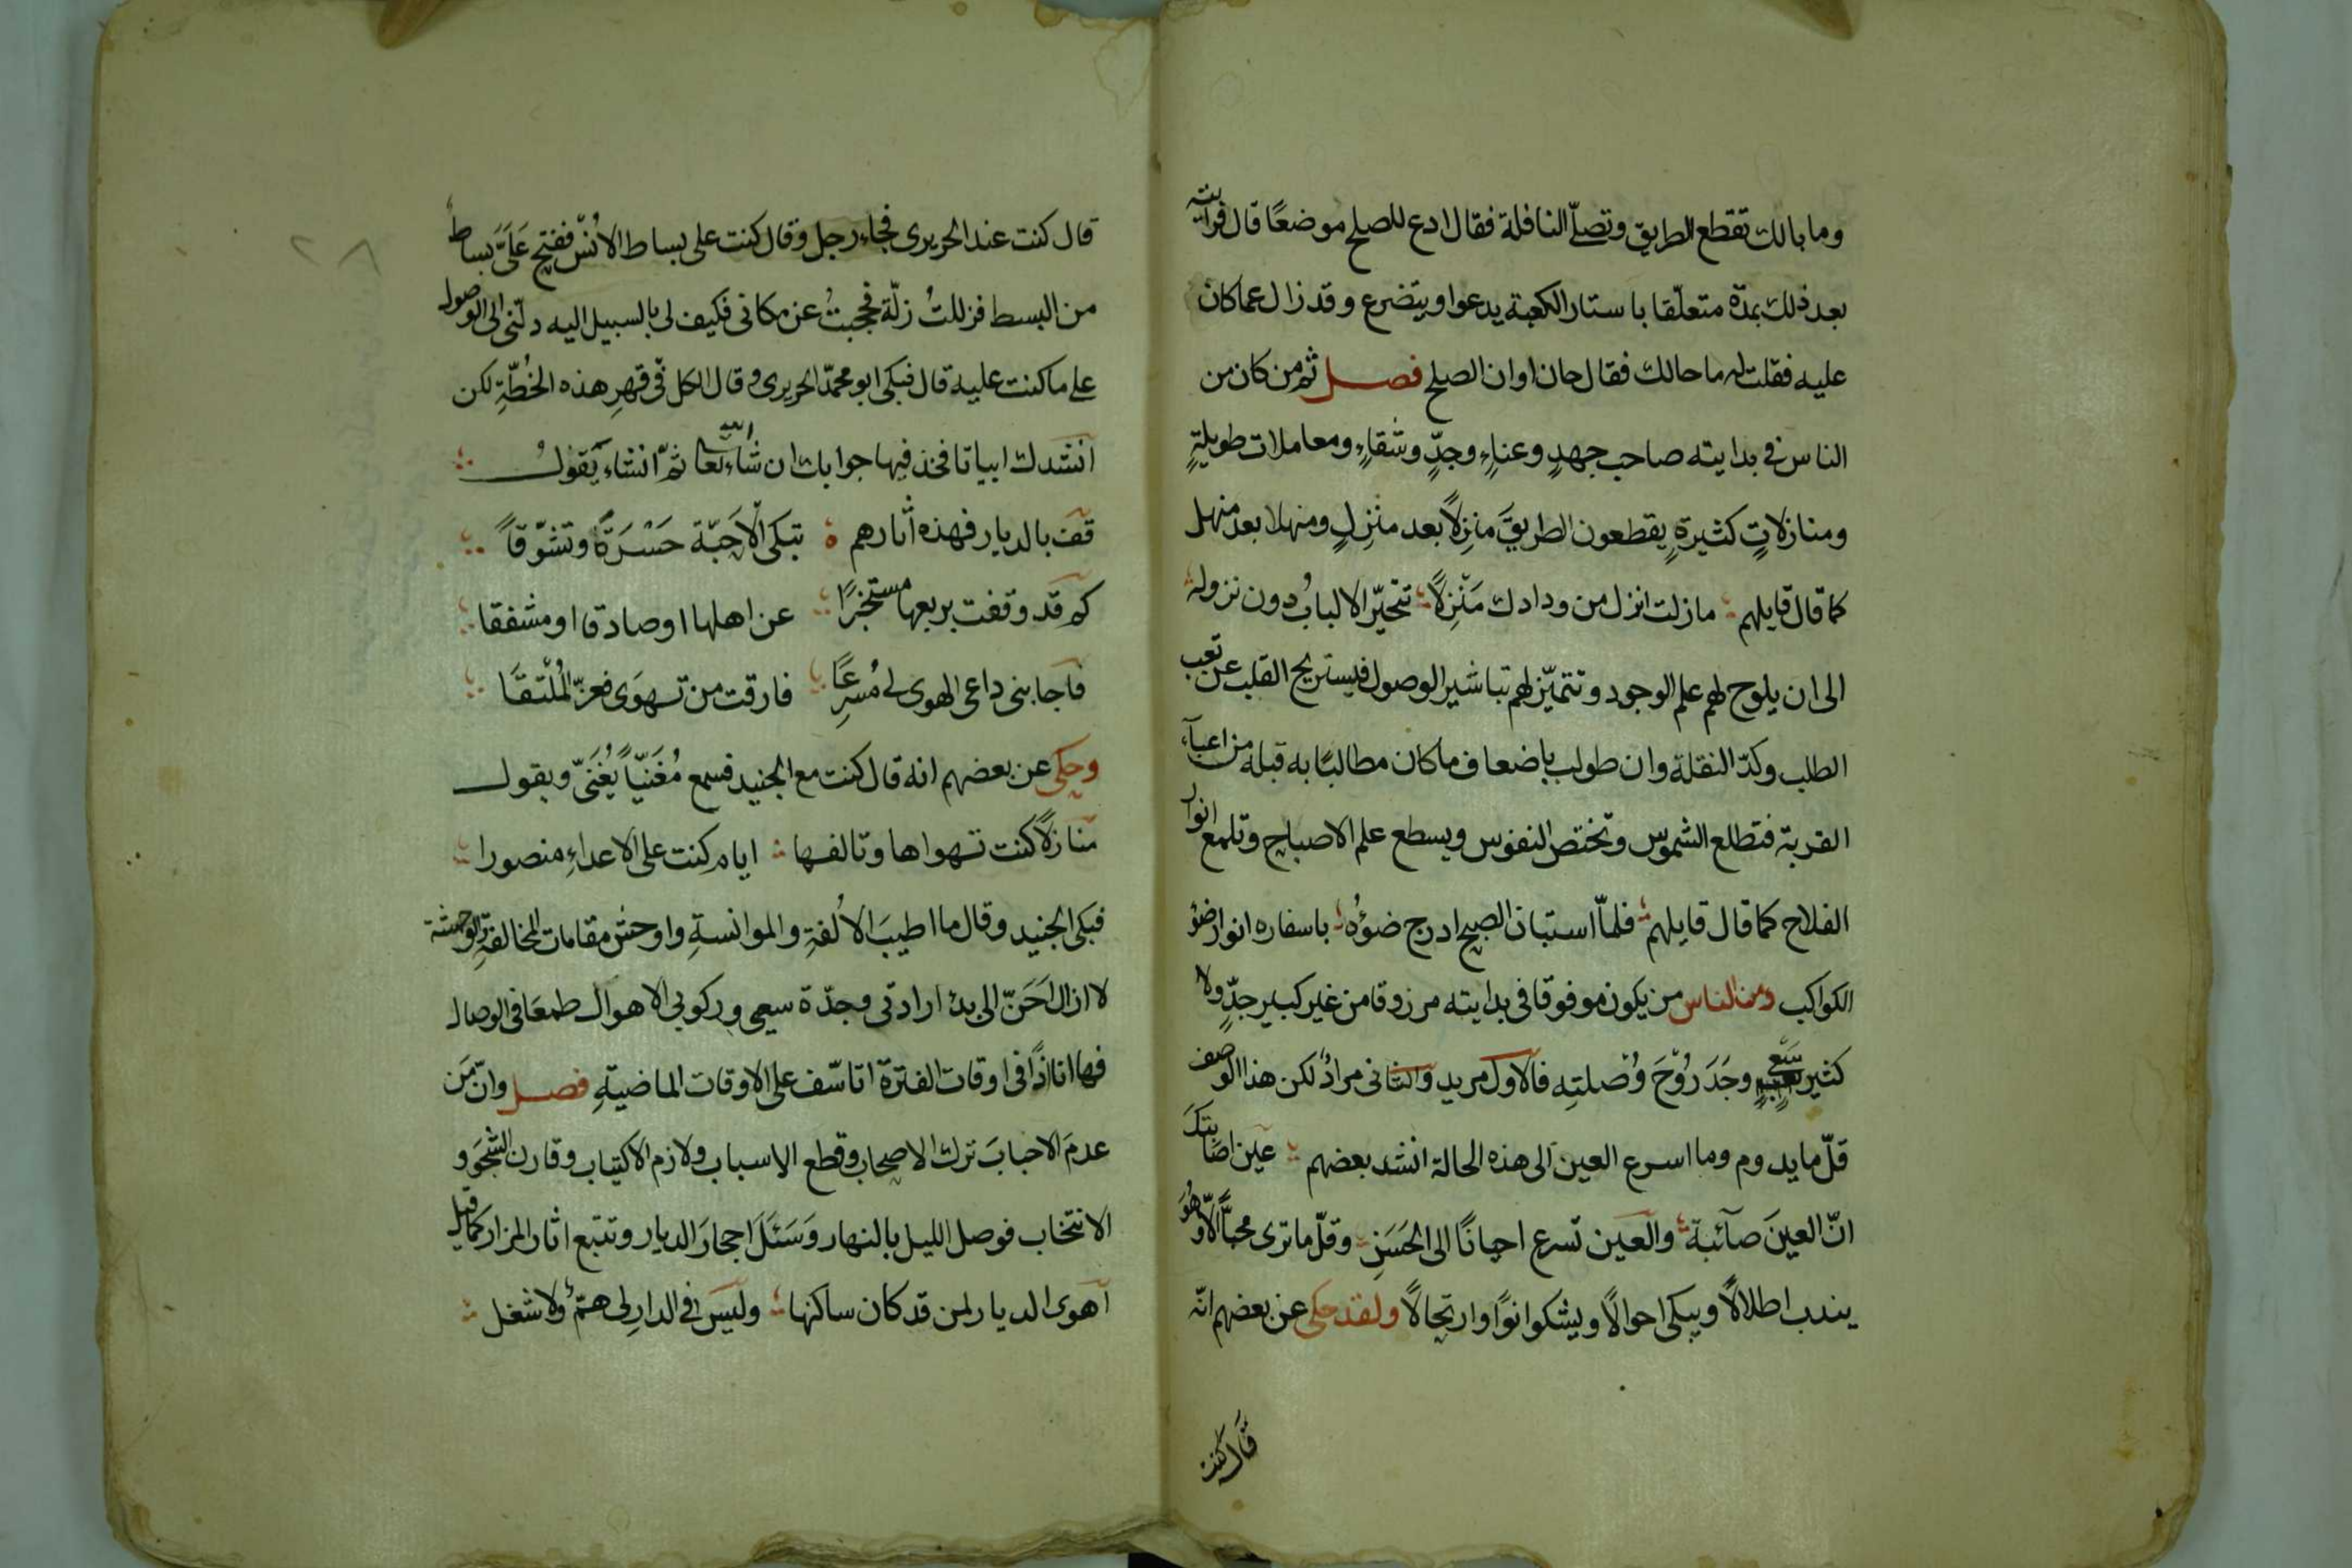 وما بالك تقطع الطريق وتصلّے النافلة فقال ادع للصلح موضعًا قال فرايته
بعد ذلك بمدّة متعلّقا باستار الكعبة يدعوا ويتضرع وقد زال عما كان
عليه فقلت له ما حالك فقال حان اوان الصلح فصل ثم من كان من
الناس في بدايته صاحب جهدٍ وعناءٍ وجدٍّ وشقاءٍ ومعاملات طويلةٍ
ومنازلاتٍ كثيرةٍ يقطعون الطريقَ منزِلاً بعد منزِلٍ ومنهلا بعد منهل
كما قال قايلهم ما زلت انزل من ودادك مَنْزِلاً تتحيّر الالبابُ دون نزوله
الى ان يلوح لهم علم الوجود وتتميّز لهم تباشير الوصول فيستريح القلب عن تعب
الطلب وكدّ النقلة وان طولب باضعاف ما كان مطالبًا به قبله من اعبآء
القربة فتطلع الشموس وتختص النفوس ويسطع علم الاصباح وتلمع انوار
الفلاح كما قال قايلهم فلمّا استبان الصبح ادرج ضوؤُه باسفاره انوار ضوٴ
الكواكب ومن الناس من يكون موفوقا في بدايته مرزوقا من غير كبير جدٍّ ولا
كثير سَعْيٍ وجَدَ رُوْحَ وُصْلتِه فالاول مريد والثاني مرادٌ لكن هذا الوصف
قلّ ما يدوم وما اسرع العين الى هذه الحالة انشد بعضهم عين اصابتكَ
انّ العينَ صآئبة والعين تسرع احيانًا الى الحَسَنِ وقلّ ما ترى محبًّا الاّ وهُوَ
يندب اطلالاً ويبكى احوالًا ويشكوا نوًا وارتحالًا ولقد حكى عن بعضهم انّه
قال كنت
قال كنت عند الحريرى فجاء رجل وقال كنت على بساط الاُنْس ففتح عَلَىَّ بساط
من البسط فزللتُ زلّة فحجبتُ عن مكانى فكيف لى بالسبيل اليه دلّنى الى الوصول
علے ما كنت عليه قال فبكى ابو محمدّ الحريرى وقال الكل فى قهرِ هذه الخُطّةِ لكن
انشدك ابياتا فخذ فيها جوابك ان شاء الله تعا ثمّ انشاء يقولُ
قف بالديار فهذه اثارهم تبكى الاَحَبّة حَسْرَةً وتشوّقاً
كم قد وقفت بربعها مستخبرًا عن اهلها او صادقا او مشفقا
فاجابنى داعى الهوى لے مُسرِعًا فارقت من تهوَى فعزّ المُلْتقَا
وحكى عن بعضهم انه قال كنت مع الجنيد فسمع مُغَنّياً يُغَنّى ويقول
منازلاً كنت تهواها وتالفها ايام كنت على الاعداءِ منصورا
فبكى الجنيد وقال ما اطيبَ الاُلفةِ والموانسةِ واوحش مقامات المخالفةِ والوحشة
لا ازال اَحَنّ الى بدٴ ارادتى وجدّة سعيى وركوبى الاهوال طمعَا فى الوصال
فها انا اذًا فى اوقات الفترة اتاسّف على الاوقات الماضيةِ فصل وانّ مَن
عدمَ الاحبابَ ترك الاصحاب وقطع الاسباب ولازم الاكتياب وقارن الشجوَ و
الانتخاب فوصل الليل بالنهار وَسَئَلَ احجارَ الديار وتتبع اثار المزار كما قيل
اهوى الديار لمن قد كان ساكنها وليسَ في الدارِ لى همٌّ ولا شغل